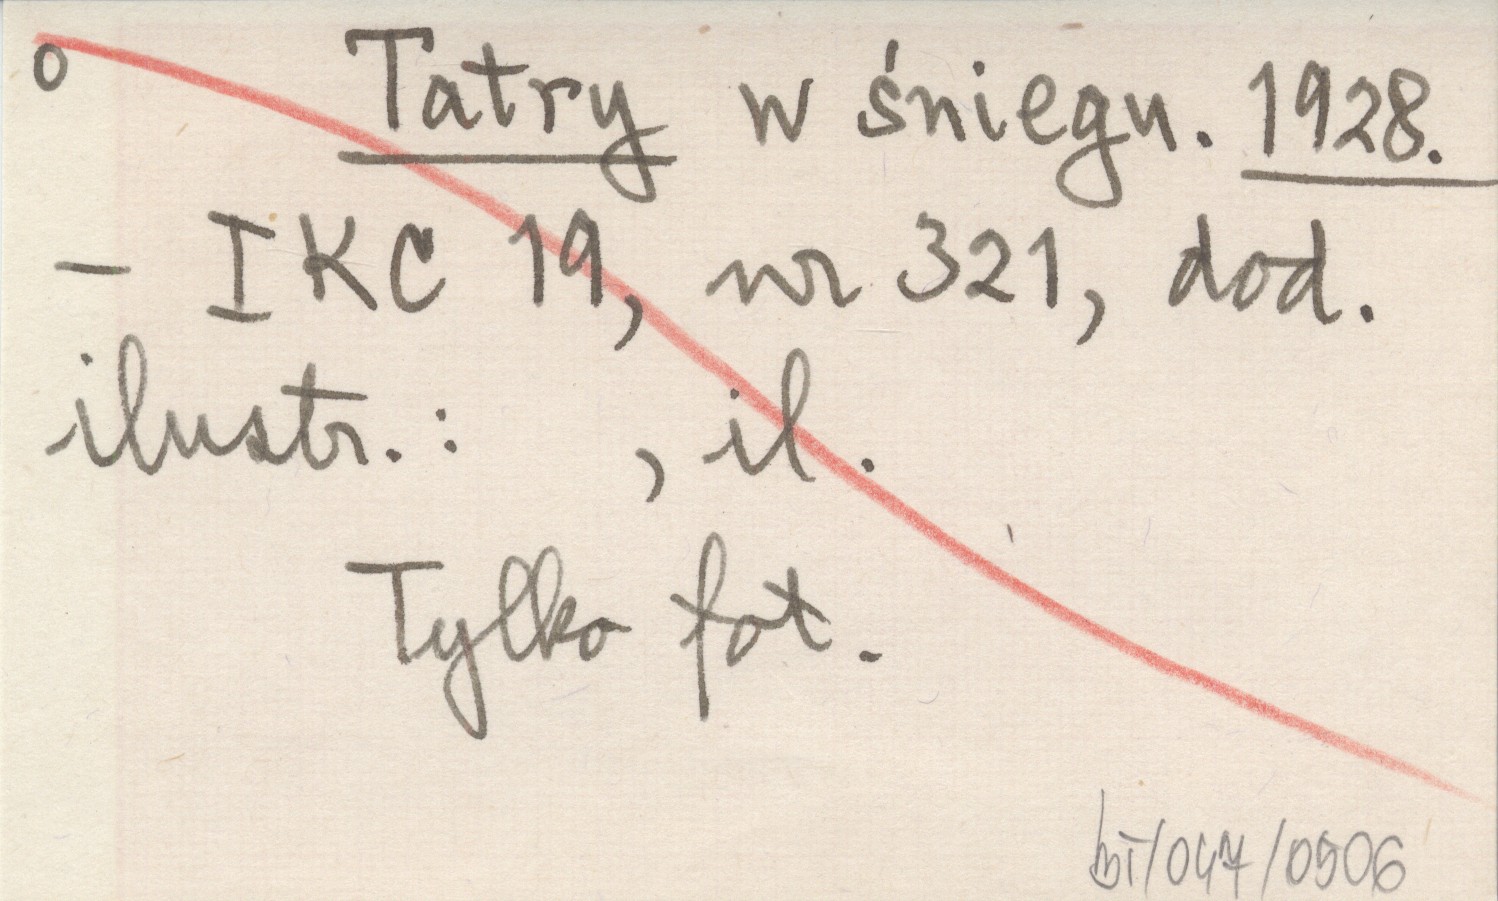 o Tatry w śniegu. 1928.
– IKC 19, nr 321, dod.
ilustr.: , il.
Tylko fot.
bī/047/0506